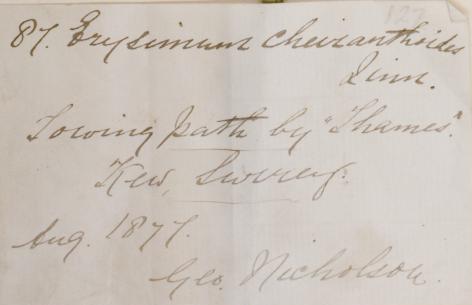 127
87. Erysimum cheiranthoides
Linn.
Towing path by "Thames".
Kew, Surrey.
Aug. 1877.
Geo. Nicholson.